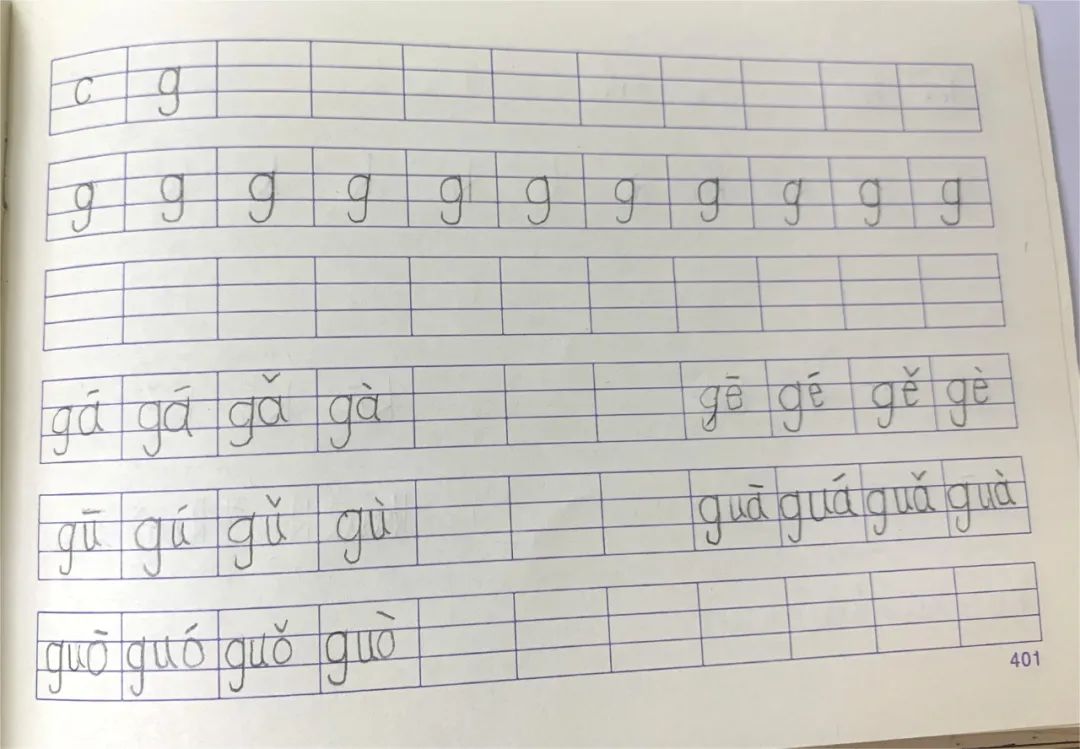 c g
g g g g g g g g g g g
gā gá gǎ gà gē gé gě gè
gū gú gǔ gù guā guá guǎ guà
guō guó guǒ guò
401